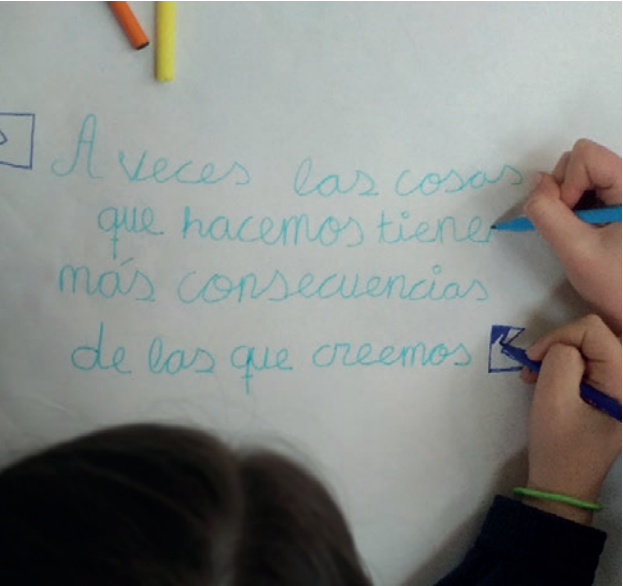 A veces las cosas
que hacemos tiene
más consecuencias
de las que creemos